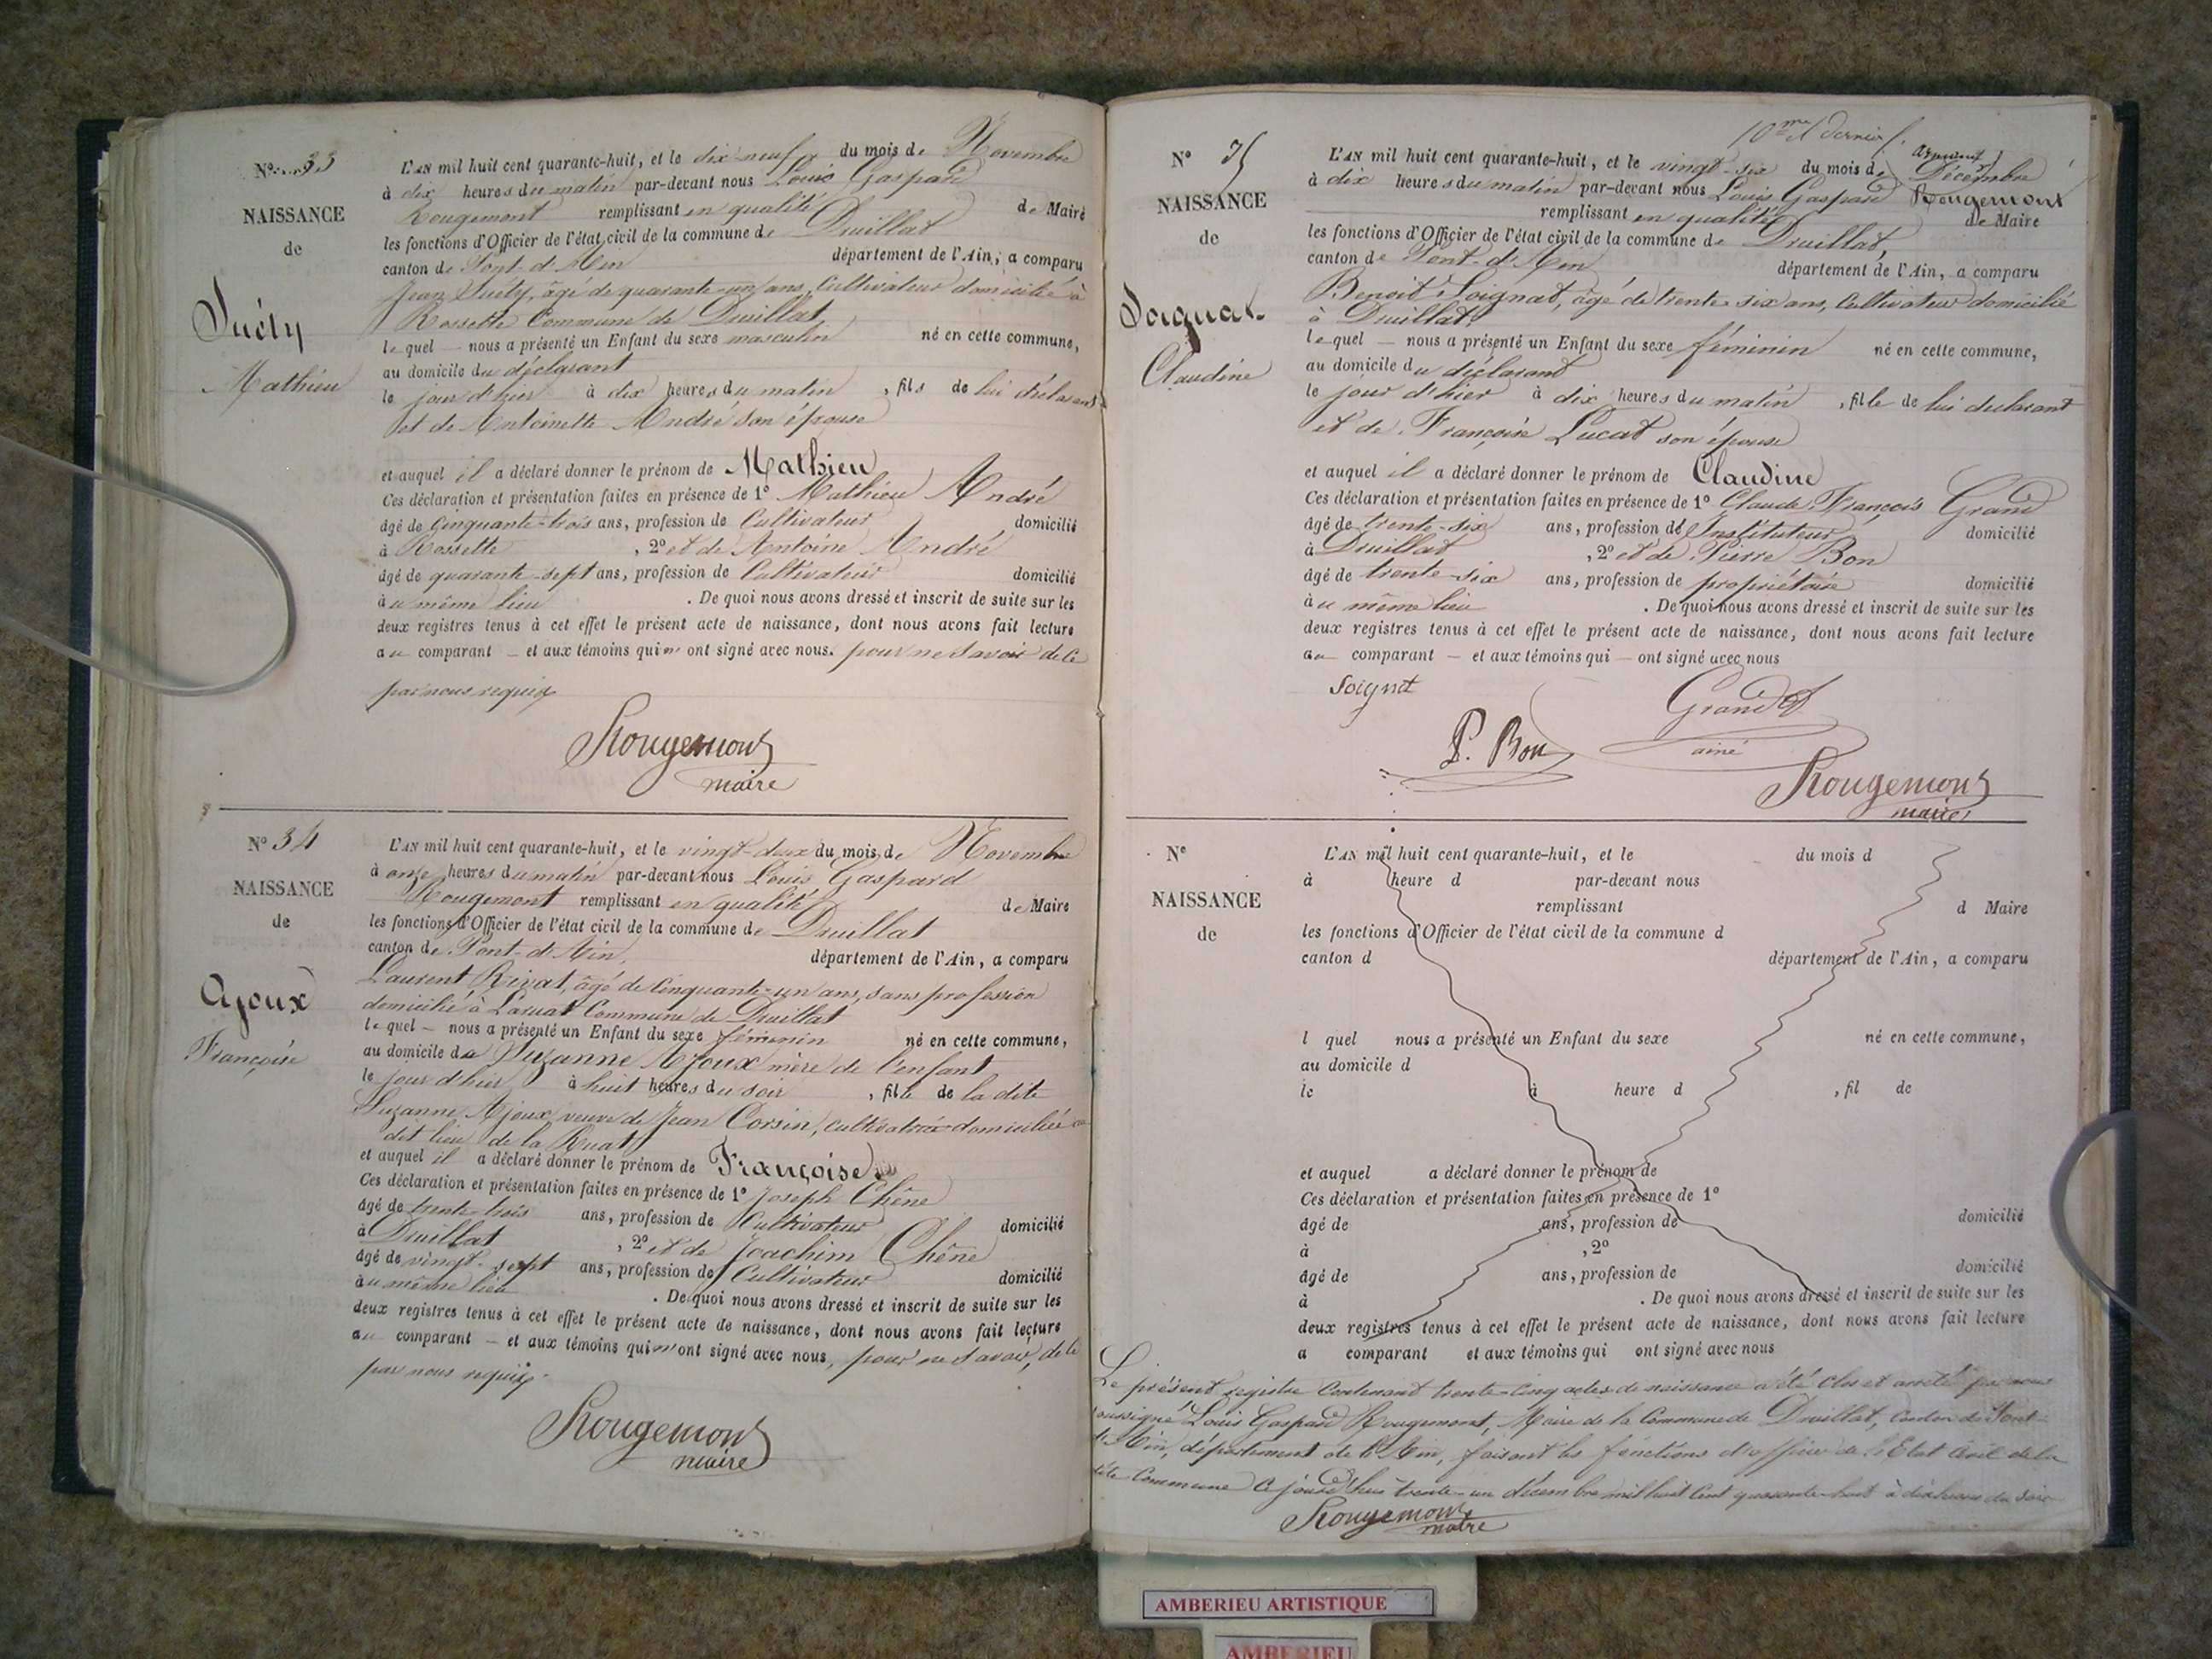 N° 33
NAISSANCE
de
Mathieu
L'AN mil huit cent quarante-huit, et le dix neuf du mois de Novembre
à dix heures du matin par-devant nous Louis Gaspard
Rougemont remplissant en qualité de Maire
les fonctions d'Officier de l'état civil de la commune de Druillat
canton de Pont-d'Ain département de l'Ain, a comparu
Jean âgé de quarante-un ans, Cultivateur domicilié à
Rossette Commune de Druillat
lequel nous a présenté un Enfant du sexe masculin né en cette commune,
au domicile du déclarant
le jour d'hier à dix heures du matin, fils de lui déclarant
et de Antoinette André son épouse
et auquel il a déclaré donner le prénom de Mathieu
Ces déclaration et présentation faites en présence de 1° Mathieu André
âgé de Cinquante-trois ans, profession de Cultivateur domicilié
à Rossette, 2° et de Antoine André
âgé de quarante-sept ans, profession de Cultivateur domicilié
au même lieu. De quoi nous avons dressé et inscrit de suite sur les
deux registres tenus à cet effet le présent acte de naissance, dont nous avons fait lecture
au comparant et aux témoins qui n'ont signé avec nous. pour ne savoir de ce
par nous requis
Rougemont
maire
N° 34
NAISSANCE
de
Ajoux
Françoise
L'AN mil huit cent quarante-huit, et le vingt-deux du mois de Novembre
à onze heures du matin par-devant nous Louis Gaspard
Rougemont remplissant en qualité de Maire
les fonctions d'Officier de l'état civil de la commune de Druillat
canton de Pont-d'Ain, département de l'Ain, a comparu
Laurent Rivat, âgé de Cinquante-un ans, sans profession
domicilié à Laruat Commune de Druillat
lequel nous a présenté un Enfant du sexe féminin né en cette commune,
au domicile de Suzanne Ajoux mère de l'enfant
le jour d'hier à huit heures du soir, fille de la dite
Suzanne Ajoux veuve de Jean Corsin, cultivatrice domiciliée au
dit lieu de la Ruat
et auquel il a déclaré donner le prénom de Françoise
Ces déclaration et présentation faites en présence de 1° Joseph Chêne
âgé de trente-trois ans, profession de Cultivateur domicilié
à Druillat, 2° et de Joachim Chêne
âgé de vingt-sept ans, profession de Cultivateur domicilié
au même lieu. De quoi nous avons dressé et inscrit de suite sur les
deux registres tenus à cet effet le présent acte de naissance, dont nous avons fait lecture
au comparant et aux témoins qui n'ont signé avec nous, pour ne savoir, de ce
par nous requis.
Rougemont
maire
10me & dernier f.
N° 35
NAISSANCE
de
Soignat
Claudine
L'AN mil huit cent quarante-huit, et le vingt-six du mois de Décembre
à dix heures du matin par-devant nous Louis Gaspard Rougemont
remplissant en qualité de Maire
les fonctions d'Officier de l'état civil de la commune de Druillat,
canton de Pont-d'Ain département de l'Ain, a comparu
Benoit Soignat, âgé de trente-six ans, Cultivateur domicilié
à Druillat,
lequel nous a présenté un Enfant du sexe féminin né en cette commune,
au domicile du déclarant
le jour d'hier à dix heures du matin, fille de lui déclarant
et de Françoise Lucat son épouse
et auquel il a déclaré donner le prénom de Claudine
Ces déclaration et présentation faites en présence de 1° Claude François Grand
âgé de trente-six ans, profession de Instituteur domicilié
à Druillat, 2° et de Pierre Bon
âgé de trente-six ans, profession de propriétaire domicilié
au même lieu. De quoi nous avons dressé et inscrit de suite sur les
deux registres tenus à cet effet le présent acte de naissance, dont nous avons fait lecture
au comparant et aux témoins qui ont signé avec nous
Soignt
Grand
ainé
P. Bon
Rougemont
maire
N°
NAISSANCE
de
L'AN mil huit cent quarante-huit, et le du mois d
à heure d par-devant nous
remplissant d Maire
les fonctions d'Officier de l'état civil de la commune d
canton d département de l'Ain, a comparu
l quel nous a présenté un Enfant du sexe né en cette commune,
au domicile d
le à heure d , fil de
et auquel a déclaré donner le prénom de
Ces déclaration et présentation faites en présence de 1°
âgé de ans, profession de domicilié
à , 2°
âgé de ans, profession de domicilié
à . De quoi nous avons dressé et inscrit de suite sur les
deux registres tenus à cet effet le présent acte de naissance, dont nous avons fait lecture
a comparant et aux témoins qui ont signé avec nous
Le présent registre Contenant trente-Cinq actes de naissance a été clos et arrêté par nous
soussigné Louis Gaspard Rougemont, Maire de la Commune de Druillat, Canton de Pont-
d'Ain, département de l'Ain, faisant les fonctions d'officier de l'Etat Civil de la
dite Commune Ce jourd'hui trente-un décembre mil huit Cent quarante-huit à dix heures du soir
Rougemont
maire
AMBERIEU ARTISTIQUE
AMBERIEU